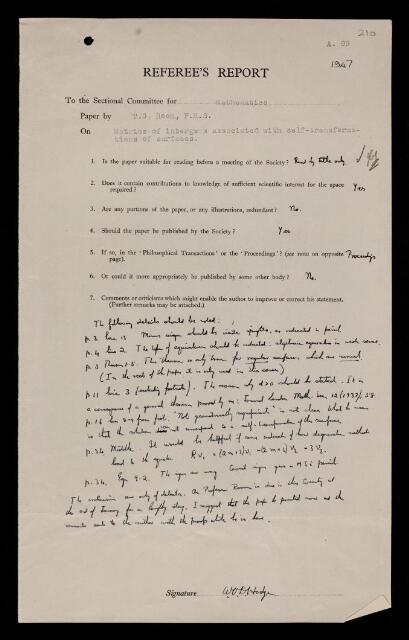 215
A. 99
1947
REFEREE'S REPORT
To the Sectional Committee for Mathematics
Paper by T.G. Room, F.R.S.
On Matrices of integers associated with self-transforma-
tions of surfaces.
1. Is the paper suitable for reading before a meeting of the Society? Read by title only
2. Does it contain contributions to knowledge of sufficient scientific interest for the space
required? Yes
3. Are any portions of the paper, or any illustrations, redundant? No.
4. Should the paper be published by the Society? Yes
5. If so, in the 'Philosophical Transactions' or the 'Proceedings'? (see note on opposite
page). Proceedings
6. Or could it more appropriately be published by some other body? No.
7. Comments or criticisms which might enable the author to improve or correct his statement.
(Further remarks may be attached.)
The following details should be noted:
p. 2. line 13 Minus sign should be as indicated in pencil
p. 4 line 2. The type of equivalence should be indicated:
p. 5 Theorem The theorem is only true for regular surfaces, which are meant.
(In the rest of the paper it is only used in this case)
p. 11 line 3 The reason why d>0 should be stated. It is
a consequence of a general theorem proved by me: Journal London Math. Soc. 12 (1937), 58.
p. 16 line from foot. "Not geometrically significant" is not clear. What he means
is that the solution does not correspond to a self-transformation of the surface.
p. 34 Middle It would be helpful if some indication of how
lead to the equation
p. 36. Eqn 9.2. The signs are wrong. Correct signs given in MS in pencil.
The corrections are only of details. As Professor Room is due in this country at
the end of January for a lengthy stay, I suggest that the paper be printed now and the
comments sent to the author with the proofs while he is here.
Signature W.V.D. Hodge